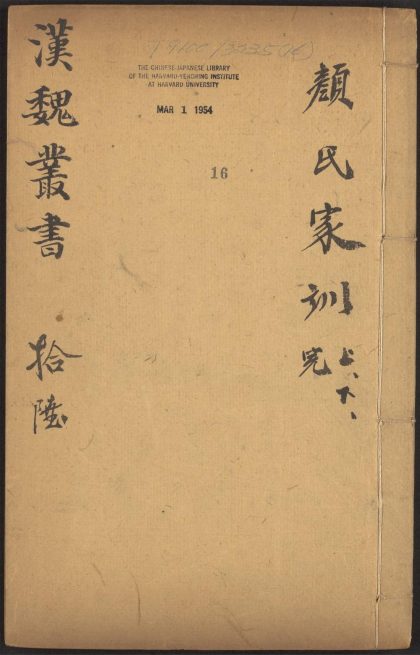 顏氏家訓 上、下、
完
漢魏叢書 拾陸
THE CHINESE-JAPANESE LIBRARY
OF THE HARVARD-YENCHING INSTITUTE
AT HARVARD UNIVERSITY
MAR 1 1954
16